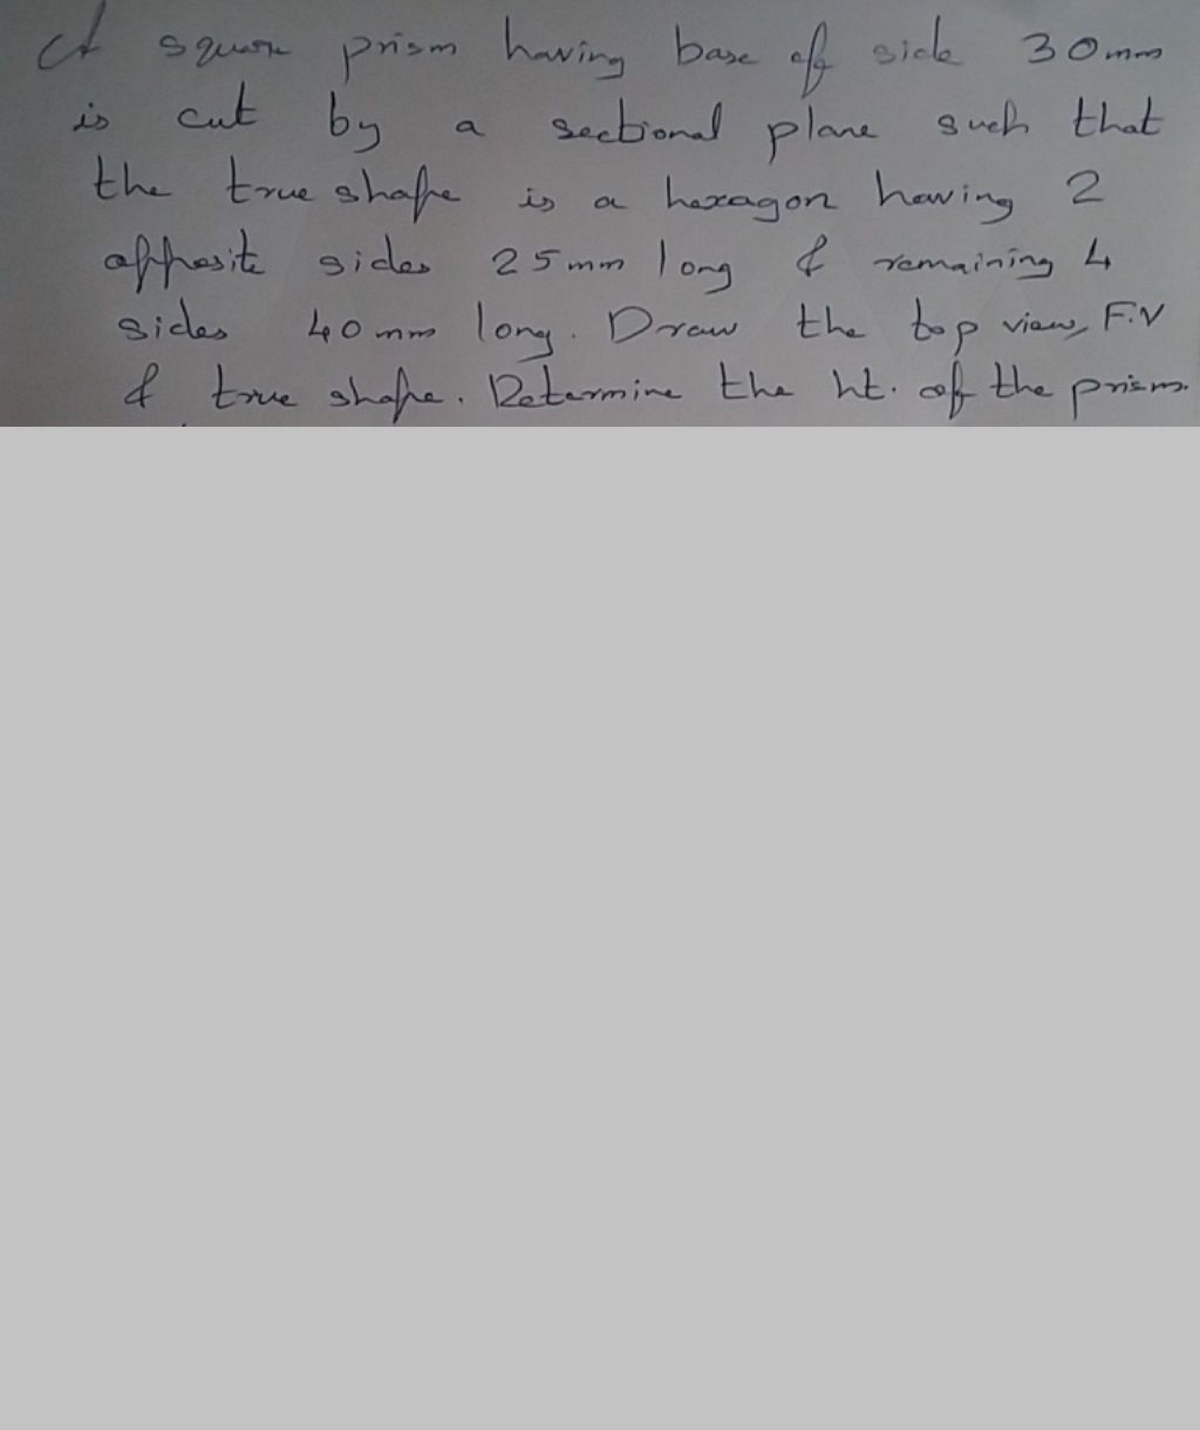 A square prism having base of side 30mm
is cut by a sectional plane such that
the true shape is a hexagon having 2
opposite sides 25mm long & remaining 4
sides 40mm long. Draw the top view, F.V
& true shape. Determine the ht. of the prism.